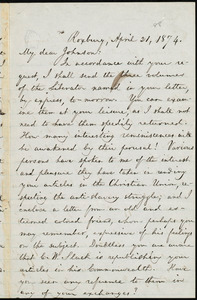 Roxbury, April 21, 1874.
My dear Johnson:
In accordance with your re-
quest, I shall send the three volumes
of the Liberator named in your letter,
by express, to-morrow. You can exam-
ine them at your leisure, as I shall not
need to have them speedily returned.
How many interesting reminiscences will
be awakened by their perusal! Various
persons have spoken to me of the interest
and pleasure they have taken in reading
your articles in the Christian Union, re-
specting the anti-slavery struggle; and I
enclose a letter from an old and es-
teemed school friend, whom perhaps you
may remember, expressive of his feelings
on the subject. Doubtless you are aware
that C. W. Slack is republishing your
articles in his Commonwealth. Have
you seen any reference to them in
any of your exchanges?